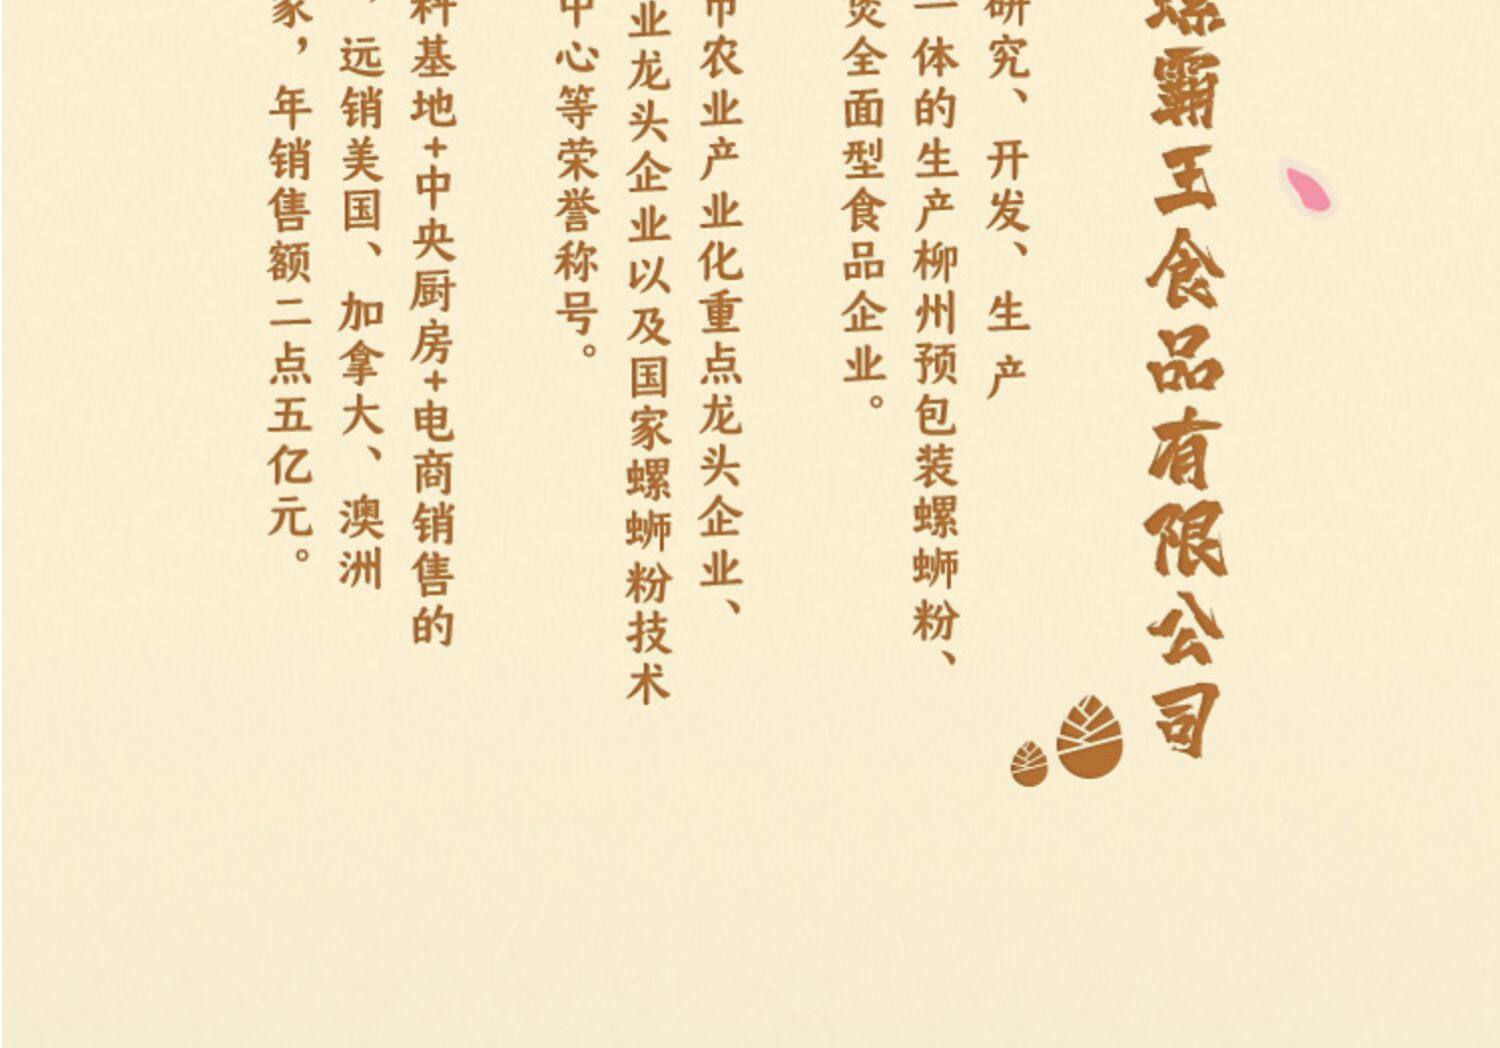 螺霸王食品有限公司
研究、开发、生产
一体的生产柳州预包装螺蛳粉、
煲全面型食品企业。
市农业产业化重点龙头企业、
业龙头企业以及国家螺蛳粉技术
中心等荣誉称号。
料基地+中央厨房+电商销售的
,远销美国、加拿大、澳洲
家,年销售额二点五亿元。